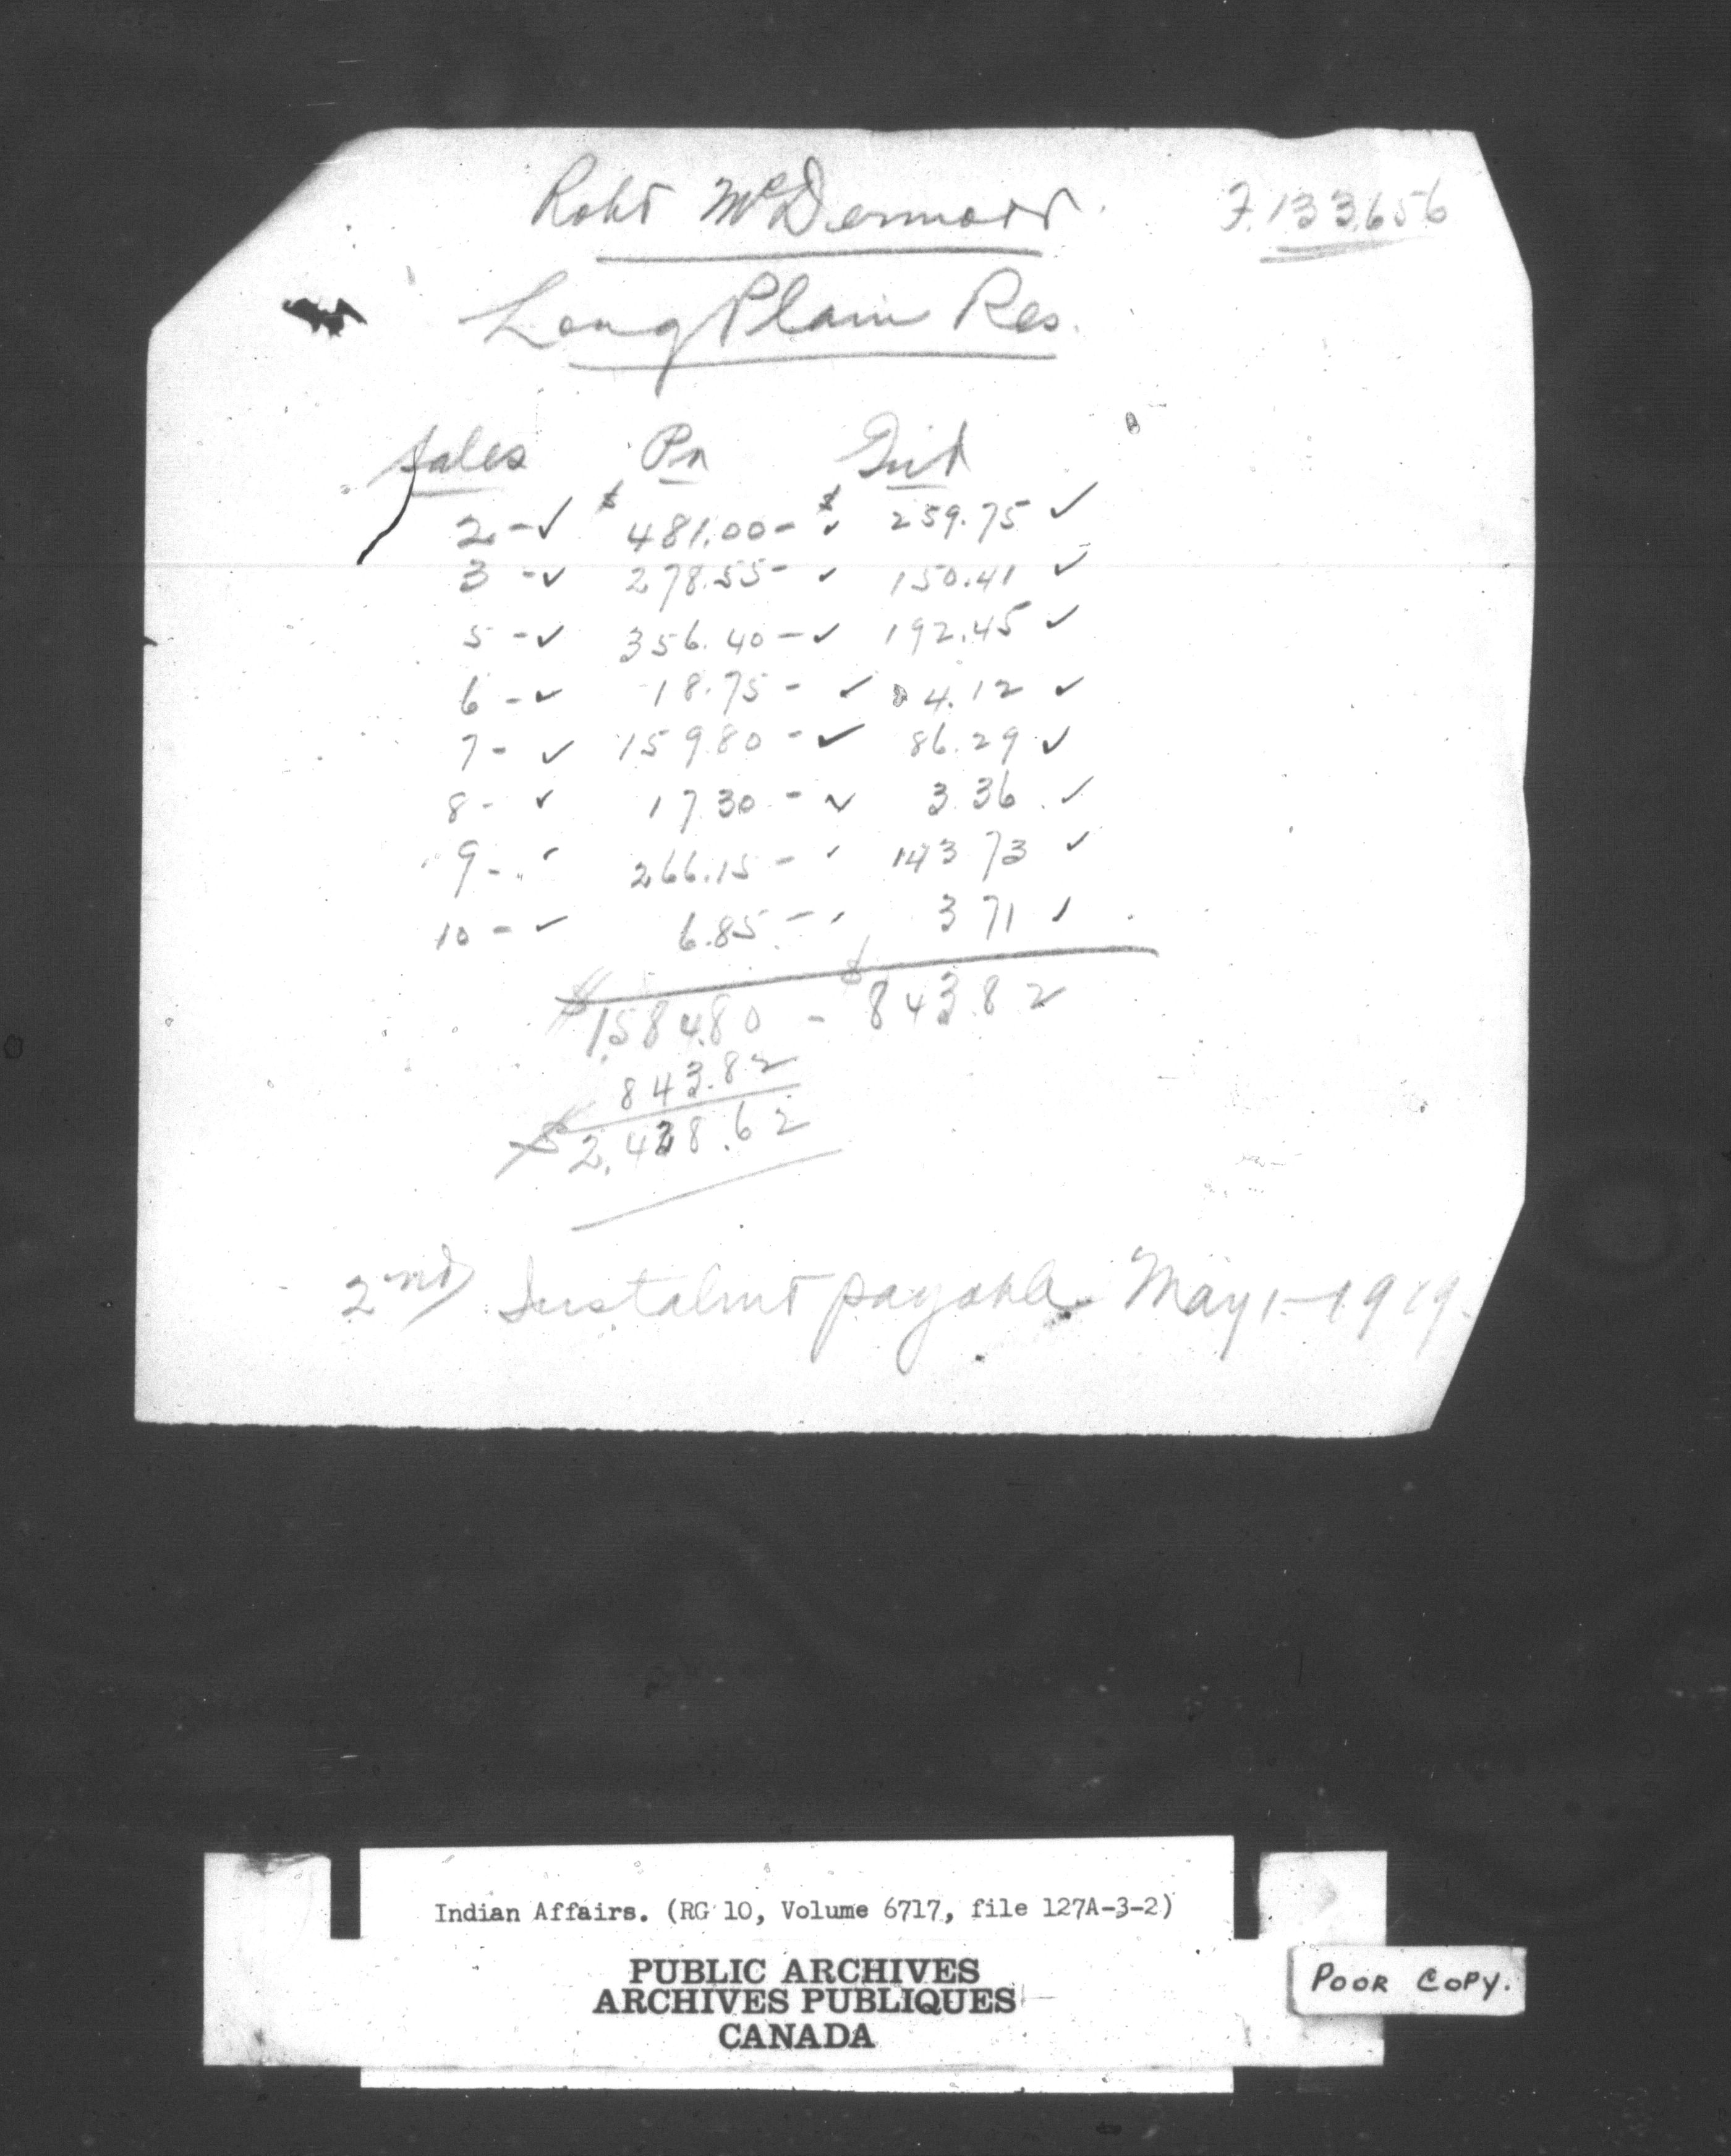 Robt McDermott. F. 133,656
Long Plain Res.
Sales Pn Int
2 - ✓ $ 481.00 - ✓ $ 259.75 ✓
3 - ✓ 278.55 - ✓ 150.41 ✓
5 - ✓ 356.40 - ✓ 192.45 ✓
6 - ✓ 18.75 - ✓ 4.12 ✓
7 - ✓ 159.80 - ✓ 86.29 ✓
8 - ✓ 17 30 - ✓ 3.36 ✓
9 - ✓ 266.15 - ✓ 143 73 ✓
10 - ✓ 6.85 - ✓ 3 71 ✓
$ 1,584.80 - $ 843.82
843.82
$ 2,428.62
2nd Instalmt payable May 1-1919.
Indian Affairs. (RG 10, Volume 6717, file 127A-3-2)
PUBLIC ARCHIVES
ARCHIVES PUBLIQUES
CANADA
POOR COPY.